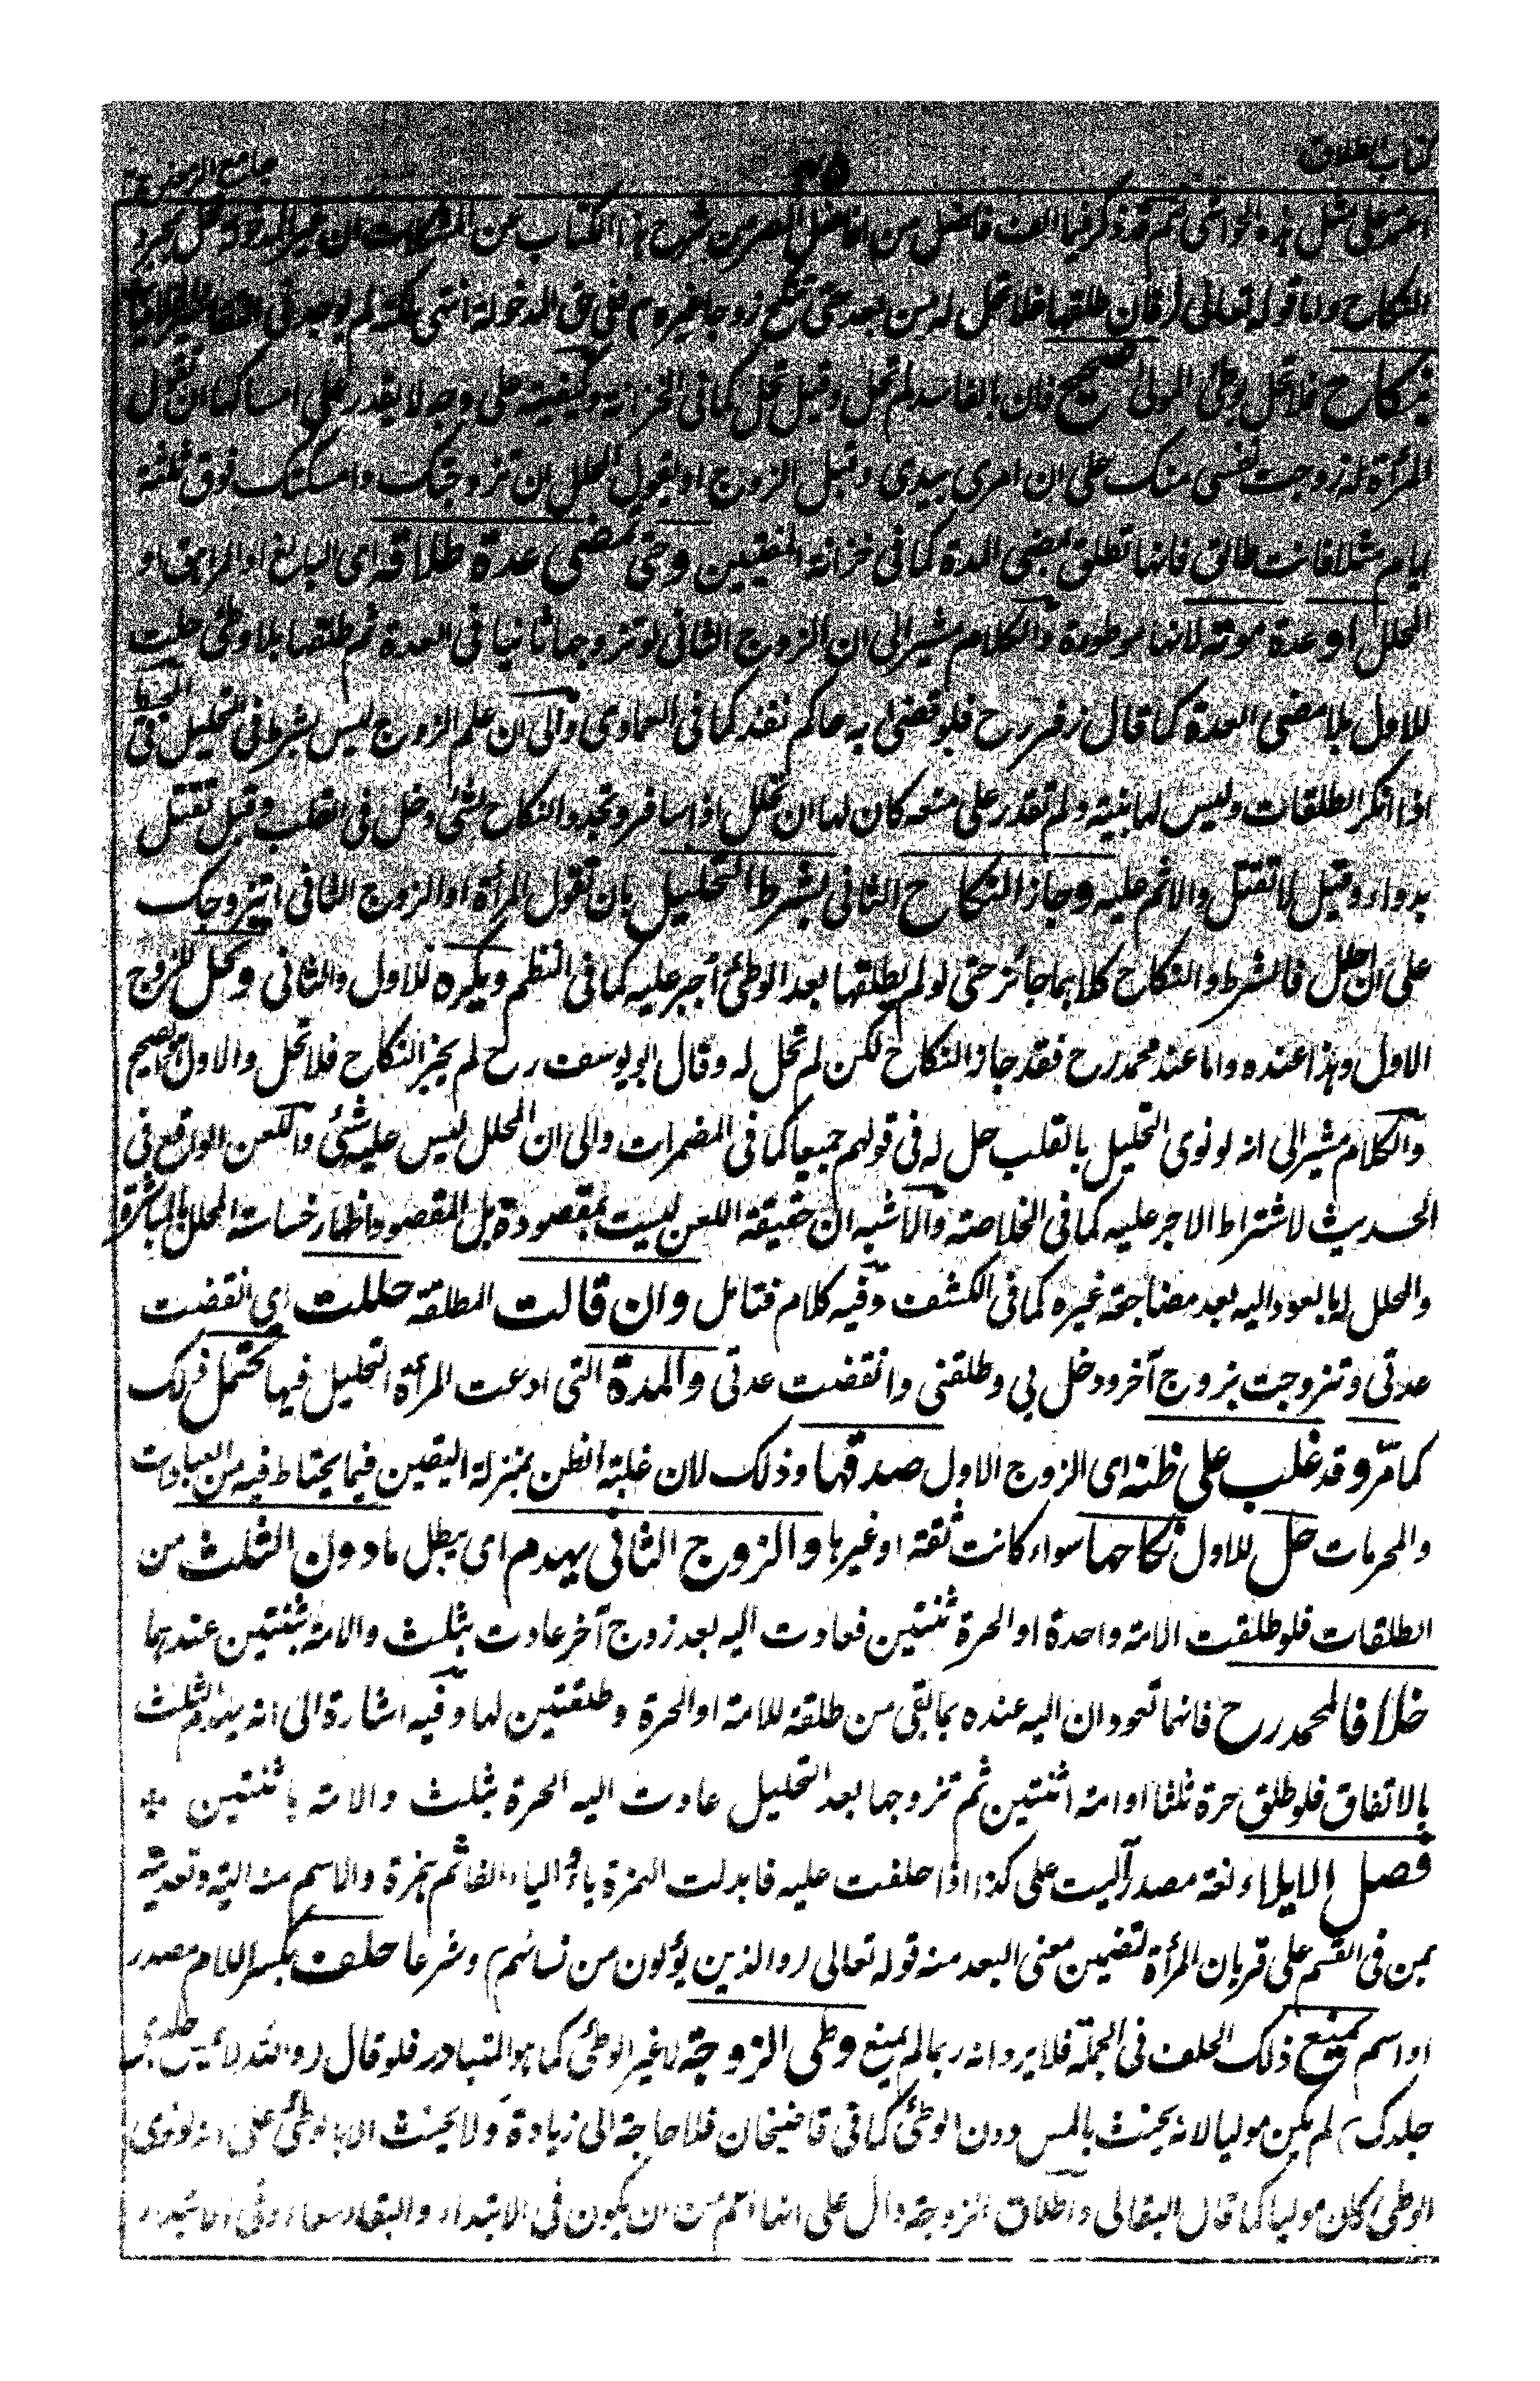 كتاب الطلاق ٣٥ جامع الرموز ج٢
اعتمد على مثل هذه الحواشى ثم قد ذكر فيما الف فاضل من افاضل العصر من شرح هذا الكتاب عن المشكلات ان غير المدخولة تحل بمجرد
النكاح واما قوله تعالى (فان طلقها فلا تحل له من بعد حتى تنكح زوجا غيره) ففى حق المدخولة انتهى لكنه لم يوجد فى
بنكاح فلا تحل بوطئ المولى صحيح فان بالفاسد لم تحل وقيل تحل كما فى الخزانة وكيفيته على وجه لا يقدر على امساكها ان تقول
المرأة له زوجت نفسى منك على ان امرى بيدى وقبل الزوج او يقول المحلل ان تزوجتك وامسكتك فوق ثلثة
ايام مثلا فانت طالق فانها تطلق بمضى المدة كما فى خزانة المفتيين وحتى تمضى عدة طلاقه اى البالغ او المراهق او
المحلل او عدة موته لانها موطوءة والكلام مشير الى ان الزوج الثانى لو تزوجها ثانيا فى العدة ثم طلقها بلا وطئ حلت
للاول بلا مضى العدة كما قال زفر رح فلو قضى به حاكم نفذ كما فى العمادى والى ان علم الزوج ليس بشرط فى التحليل
اذا انكر الطلقات وليس لها بينة ولم تقدر على منعه كان لها ان تحلل اذا سافر وتجدد النكاح لشئ دخل فى القلب وقيل تقتل
بدواء وقيل لا تقتل والاثم عليه وجاز النكاح الثانى بشرط التحليل بان تقول المرأة او الزوج الثانى اتزوجك
على ان احلل فالشرط والنكاح كلاهما جائز حتى لو لم يطلقها بعد الوطئ اجبر عليه كما فى النظم ويكره للاول والثانى وتحل للزوج
الاول وهذا عنده واما عند محمد رح فقد جاز النكاح لكن لم تحل له وقال ابو يوسف رح لم يجز النكاح فلا تحل والاول الصحيح
والكلام مشير الى انه لو نوى التحليل بالقلب حل له فى قولهم جميعا كما فى المضمرات والى ان المحلل ليس عليه شئ واللعن الواقع فى
الحديث لاشتراط الاجر عليه كما فى الخلاصة والاشبه ان حقيقة اللعن ليست بمقصودة بل المقصود اظهار خساسة المحلل بالمباشرة
والمحلل له بالعود اليه بعد مضاجعة غيره كما فى الكشف وفيه كلام فتامل وان قالت المطلقة حللت اى انقضت
عدتى وتزوجت بزوج آخر ودخل بى وطلقنى وانقضت عدتى والمدة التى ادعت المرأة التحليل فيها تحتمل ذلك
كما مر وقد غلب على ظنه اى الزوج الاول صدقها وذلك لان غلبة الظن بمنزلة اليقين فيما يحتاط فيه من العبادات
والمحرمات حل للاول نكاحها سواء كانت ثقة او غيرها والزوج الثانى يهدم اى يبطل مادون الثلث من
الطلقات فلو طلقت الامة واحدة او الحرة ثنتين فعادت اليه بعد زوج آخر عادت بثلث والامة بثنتين عندهما
خلافا لمحمد رح فانهما تعودان اليه عنده بما بقى من طلقة للامة او الحرة وطلقتين لها وفيه اشارة الى انه يهدم الثلث
بالاتفاق فلو طلق حرة ثلثا او امة اثنتين ثم تزوجها بعد التحليل عادت اليه الحرة بثلث والامة باثنتين
فصل الايلاء لغة مصدر آليت على كذا اذا حلفت عليه فابدلت الهمزة ياء والياء الفا ثم همزة والاسم منه الية وتعديته
بمن فى القسم على قربان المرأة لتضمين معنى البعد منه قوله تعالى (والذين يؤلون من نسائهم) وشرعا حلف بكسر اللام مصدر
او اسم يمنع ذلك الحلف فى الجملة فلا يرد انه ربما لم يمنع وطى الزوجة لا غير الوطئ كما هو المتبادر فلو قال (والله لا يمس جلدى
جلدك) لم يكن موليا لانه يحنث بالمس دون الوطئ كما فى قاضيخان فلا حاجة الى زيادة ولا يحنث الا بالوطئ على انه لو نوى
الوطئ كان موليا كما قال البقالى واطلاق الزوجة دال على انها اعم من ان يكون فى الابتداء والبقاء معا او فى الابتداء